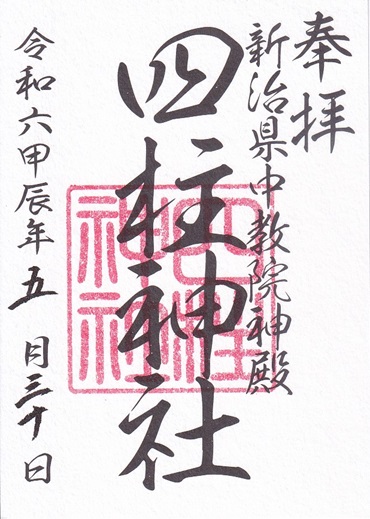 奉拝
新治県中教院神殿
四柱神社
四柱神社
令和六甲辰年五月三十日